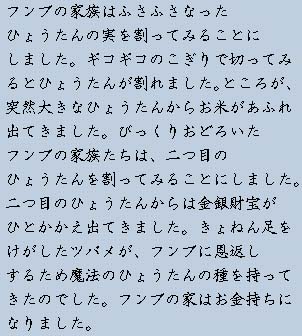 フンブの家族はふさふさなった
ひょうたんの実を割ってみることに
しました。ギコギコのこぎりで切ってみ
るとひょうたんが割れました。ところが、
突然大きなひょうたんからお米があふれ
出てきました。びっくりおどろいた
フンブの家族たちは、二つ目の
ひょうたんを割ってみることにしました。
二つ目のひょうたんからは金銀財宝が
ひとかかえ出てきました。きょねん足を
けがしたツバメが、フンブに恩返し
するため魔法のひょうたんの種を持って
きたのでした。フンブの家はお金持ちに
なりました。